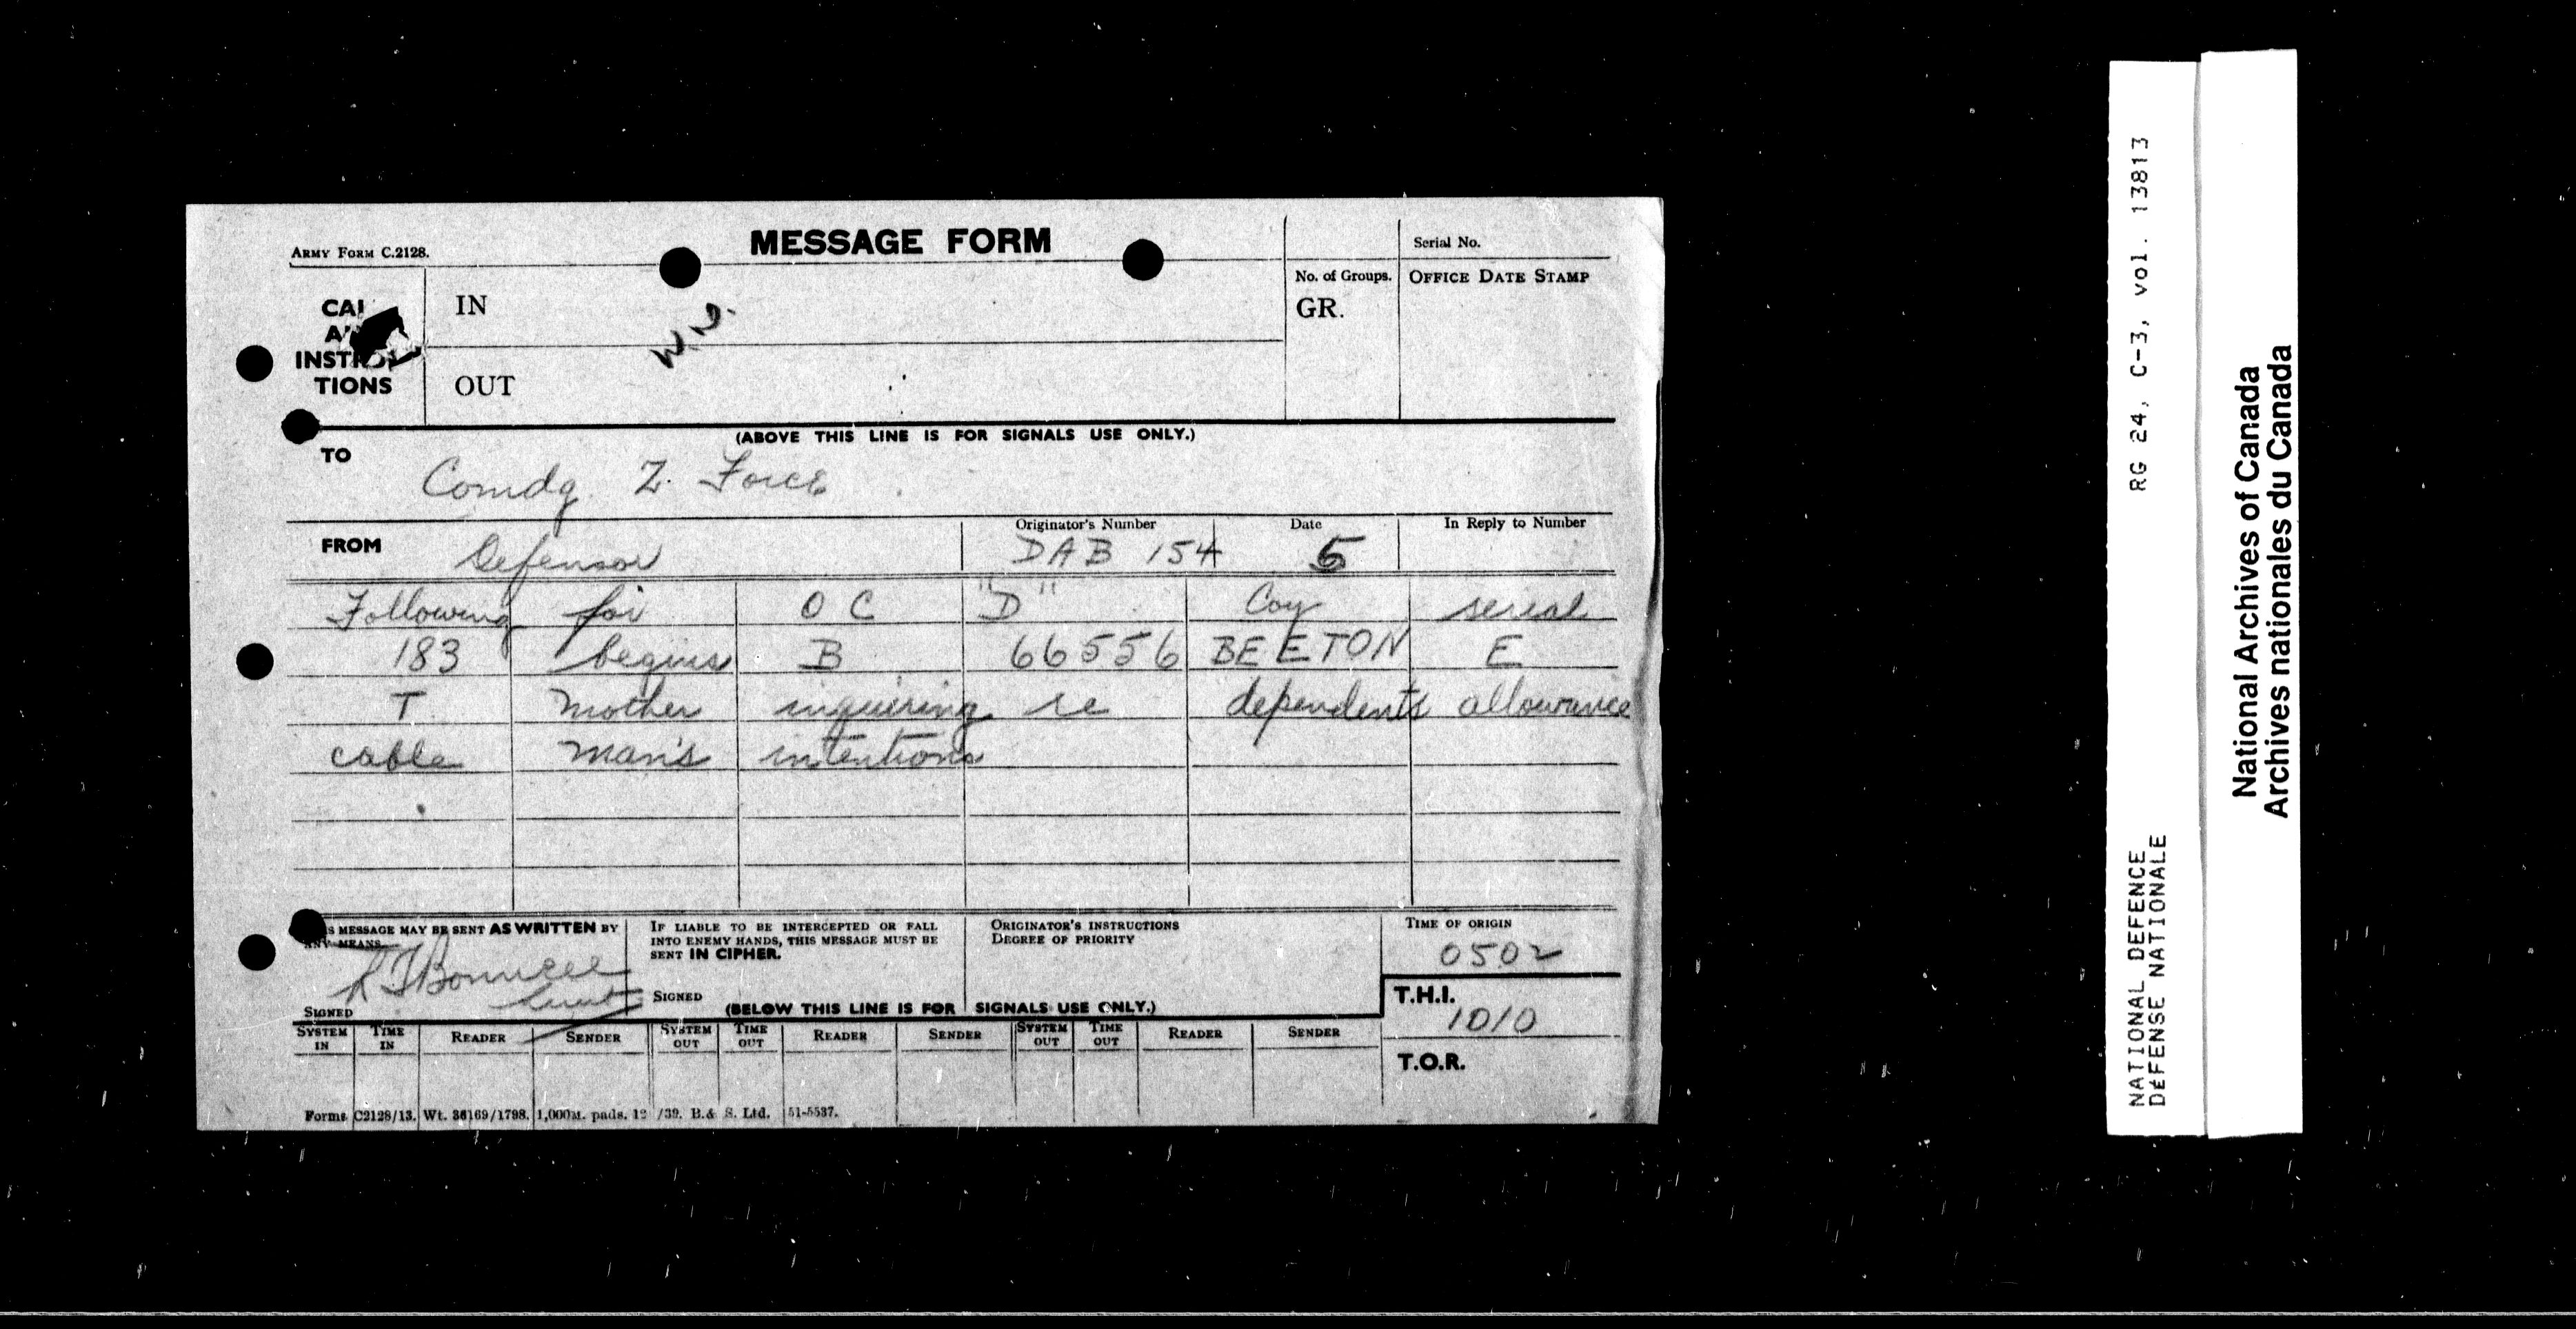 ARMY FORM C.2128.
MESSAGE FORM
Serial No.
CAL
A
INSTRUC-
TIONS
IN
OUT
W.D.
No. of Groups.
GR.
OFFICE DATE STAMP
(ABOVE THIS LINE IS FOR SIGNALS USE ONLY.)
TO
Comdg. Z. Force
FROM
Defensor
Originator's Number
DAB 154
Date
5
In Reply to Number
Following for O C "D" Coy serial
183 begins B 66556 BEETON E
T mother inquiring re dependents allowance
cable man's intentions
S MESSAGE MAY BE SENT AS WRITTEN BY
ANY MEANS.
Lieut
SIGNED
IF LIABLE TO BE INTERCEPTED OR FALL
INTO ENEMY HANDS, THIS MESSAGE MUST BE
SENT IN CIPHER.
SIGNED
ORIGINATOR'S INSTRUCTIONS
DEGREE OF PRIORITY
TIME OF ORIGIN
0502
(BELOW THIS LINE IS FOR SIGNALS USE ONLY.)
T.H.I.
1010
SYSTEM IN TIME IN READER SENDER SYSTEM OUT TIME OUT READER SENDER SYSTEM OUT TIME OUT READER SENDER
T.O.R.
Forms C2128/13. Wt. 36169/1798. 1,000M. pads. 12/39. B.& S. Ltd. 51-5537.
RG 24, C-3, vol. 13813
NATIONAL DEFENCE
DÉFENSE NATIONALE
National Archives of Canada
Archives nationales du Canada